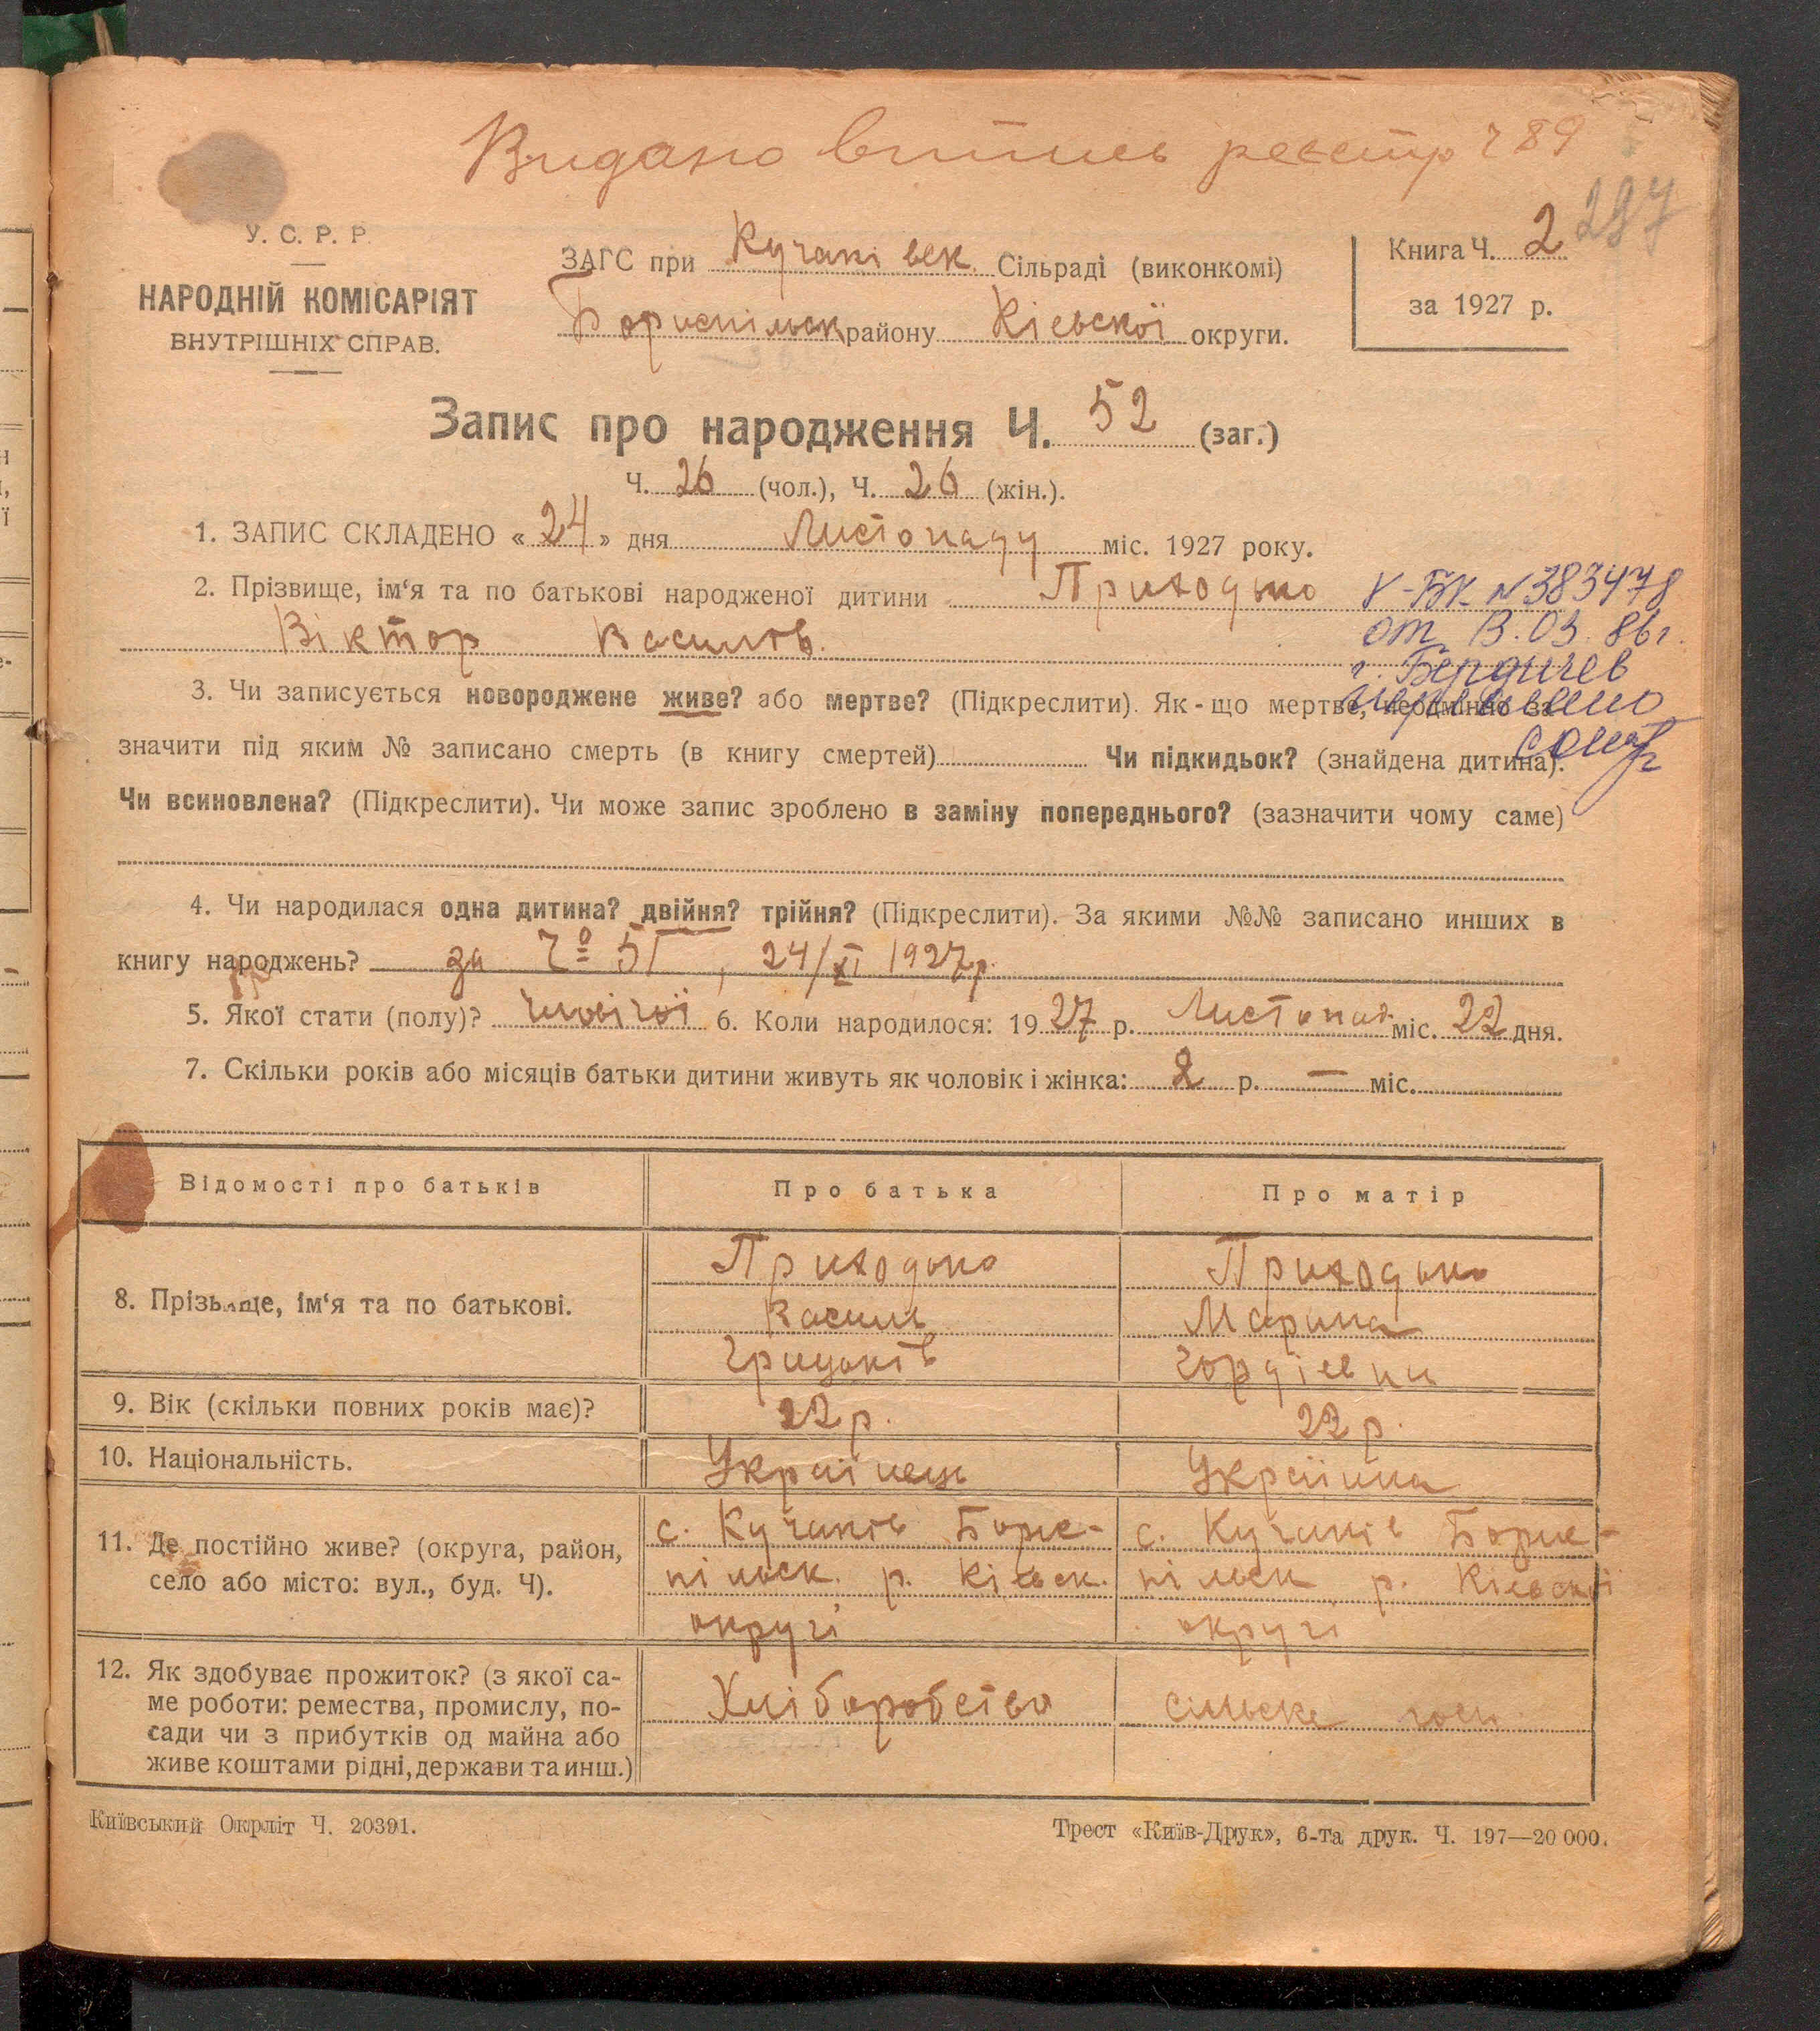 Видано витпись реєстр ч 89
297
У. С. Р. Р.
НАРОДНІЙ КОМІСАРІЯТ
ВНУТРІШНІХ СПРАВ.
ЗАГС при Кучанівск. Сільраді (виконкомі)
Бориспільск району Кієвскої округи.
Книга Ч. 2
за 1927 р.
Запис про народження Ч. 52 (заг.)
Ч. 26 (чол.), Ч. 26 (жін.).
1. ЗАПИС СКЛАДЕНО «24» дня Листопаду міс. 1927 року.
2. Прізвище, ім‘я та по батькові народженої дитини Приходько
Віктор Василів.
V-БК N 383478
от 13.03.86г.
г. Бердичев
3. Чи записується новороджене живе? або мертве? (Підкреслити). Як-що мертве, неодмінно за-
значити під яким № записано смерть (в книгу смертей) Чи підкидьок? (знайдена дитина).
Чи всиновлена? (Підкреслити). Чи може запис зроблено в заміну попереднього? (зазначити чому саме)
4. Чи народилася одна дитина? двійня? трійня? (Підкреслити). За якими №№ записано инших в
книгу народжень? за Чо 51, 24/XI 1927р.
5. Якої стати (полу)? чловічої 6. Коли народилося: 1927 р. Листопад міс. 22 дня.
7. Скільки років або місяців батьки дитини живуть як чоловік і жінка: 2 р. — міс.
Відомості про батьків Про батька Про матір
8. Прізьвище, ім‘я та по батькові.
Приходько Приходько
Василь Марина
Грицьків Гордіевна
9. Вік (скільки повних років має)? 22 р. 22 р.
10. Національність. Українець Українка
11. Де постійно живе? (округа, район,
село або місто: вул., буд. Ч).
с. Кучанів Борис- с. Кучанів Борис-
пільск. р. Кієвск. пільск р. Кієвскої
округі округі
12. Як здобуває прожиток? (з якої са-
ме роботи: ремества, промислу, по-
сади чи з прибутків од майна або
живе коштами рідні, держави та инш.)
Хліборобство сільске госп.
Київський Окрліт Ч. 20391.
Трест «Київ-Друк», 6-та друк. Ч. 197—20 000.